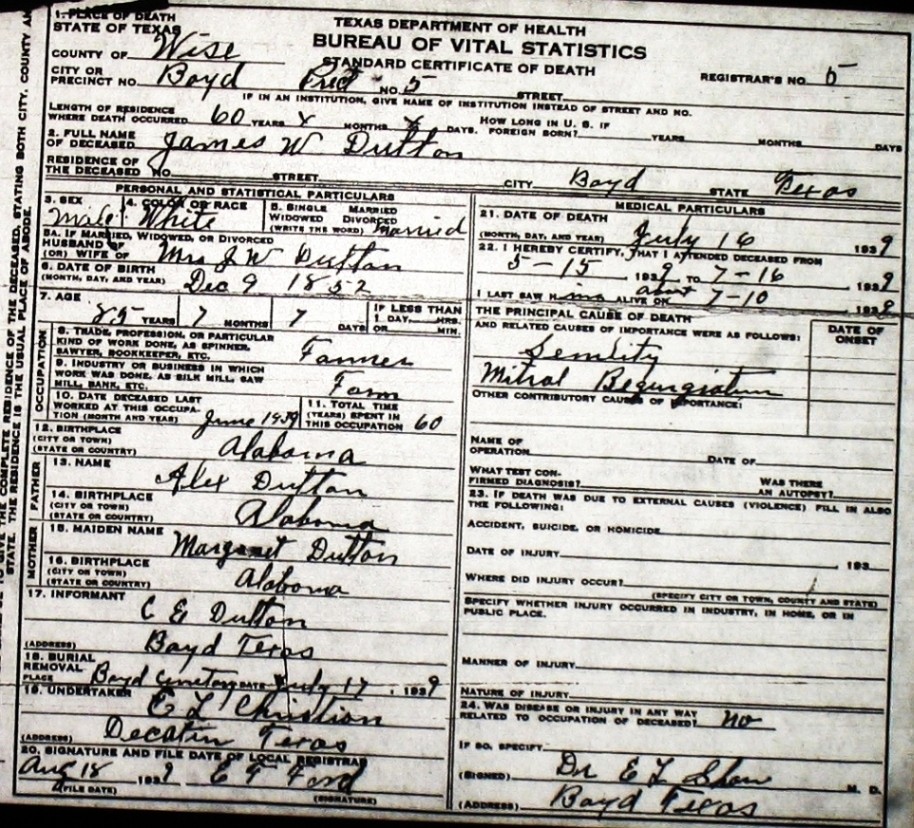 1. PLACE OF DEATH
STATE OF TEXAS
TEXAS DEPARTMENT OF HEALTH
BUREAU OF VITAL STATISTICS
STANDARD CERTIFICATE OF DEATH
COUNTY OF Wise
REGISTRAR'S NO. 5
CITY OR PRECINCT NO. Boyd Prect NO. 5 STREET
IF IN AN INSTITUTION, GIVE NAME OF INSTITUTION INSTEAD OF STREET AND NO.
LENGTH OF RESIDENCE WHERE DEATH OCCURRED 60 YEARS MONTHS DAYS. HOW LONG IN U. S. IF FOREIGN BORN? YEARS MONTHS DAYS
2. FULL NAME OF DECEASED James W Dutton
RESIDENCE OF THE DECEASED NO. STREET CITY Boyd STATE Texas
PERSONAL AND STATISTICAL PARTICULARS
3. SEX Male
4. COLOR OR RACE White
5. SINGLE MARRIED WIDOWED DIVORCED (WRITE THE WORD) Married
5A. IF MARRIED, WIDOWED, OR DIVORCED
HUSBAND OF (OR) WIFE OF Mrs J W Dutton
6. DATE OF BIRTH (MONTH, DAY, AND YEAR) Dec 9 1852
7. AGE YEARS 7 MONTHS 7 DAYS IF LESS THAN 1 DAY, HRS. OR MIN.
OCCUPATION
8. TRADE, PROFESSION, OR PARTICULAR
KIND OF WORK DONE, AS SPINNER,
SAWYER, BOOKKEEPER, ETC. Farmer
9. INDUSTRY OR BUSINESS IN WHICH
WORK WAS DONE, AS SILK MILL, SAW
MILL, BANK, ETC. Farm
10. DATE DECEASED LAST
WORKED AT THIS OCCUPA-
TION (MONTH AND YEAR) June 1939
11. TOTAL TIME
(YEARS) SPENT IN
THIS OCCUPATION 60
12. BIRTHPLACE
(CITY OR TOWN)
(STATE OR COUNTRY) Alabama
FATHER
13. NAME Alex Dutton
14. BIRTHPLACE
(CITY OR TOWN)
(STATE OR COUNTRY) Alabama
MOTHER
15. MAIDEN NAME Margaret Dutton
16. BIRTHPLACE
(CITY OR TOWN)
(STATE OR COUNTRY) Alabama
17. INFORMANT C E Dutton
(ADDRESS) Boyd Texas
18. BURIAL
REMOVAL
PLACE Boyd DATE July 17, 1939
19. UNDERTAKER E L Christian
(ADDRESS) Decatur Texas
20. SIGNATURE AND FILE DATE OF LOCAL REGISTRAR
Aug 18 1939 Ford
(FILE DATE) (SIGNATURE)
MEDICAL PARTICULARS
21. DATE OF DEATH
(MONTH, DAY, AND YEAR) July 16 1939
22. I HEREBY CERTIFY, THAT I ATTENDED DECEASED FROM
5-15 1939 TO 7-16, 1939
I LAST SAW H im ALIVE ON about 7-10 1939
THE PRINCIPAL CAUSE OF DEATH
AND RELATED CAUSES OF IMPORTANCE WERE AS FOLLOWS:
DATE OF ONSET
Mitral
OTHER CONTRIBUTORY CAUSES OF IMPORTANCE:
NAME OF
OPERATION DATE OF
WHAT TEST CON-
FIRMED DIAGNOSIS? WAS THERE AN AUTOPSY?
23. IF DEATH WAS DUE TO EXTERNAL CAUSES (VIOLENCE) FILL IN ALSO
THE FOLLOWING:
ACCIDENT, SUICIDE, OR HOMICIDE
DATE OF INJURY 193
WHERE DID INJURY OCCUR?
(SPECIFY CITY OR TOWN, COUNTY AND STATE)
SPECIFY WHETHER INJURY OCCURRED IN INDUSTRY, IN HOME, OR IN
PUBLIC PLACE.
MANNER OF INJURY
NATURE OF INJURY
24. WAS DISEASE OR INJURY IN ANY WAY
RELATED TO OCCUPATION OF DECEASED? no
IF SO, SPECIFY
(SIGNED) Dr E L M. D.
(ADDRESS) Boyd Texas
GIVE THE COMPLETE RESIDENCE OF THE DECEASED, STATING BOTH CITY, COUNTY AN
STATE. THE RESIDENCE IS THE USUAL PLACE OF ABODE.